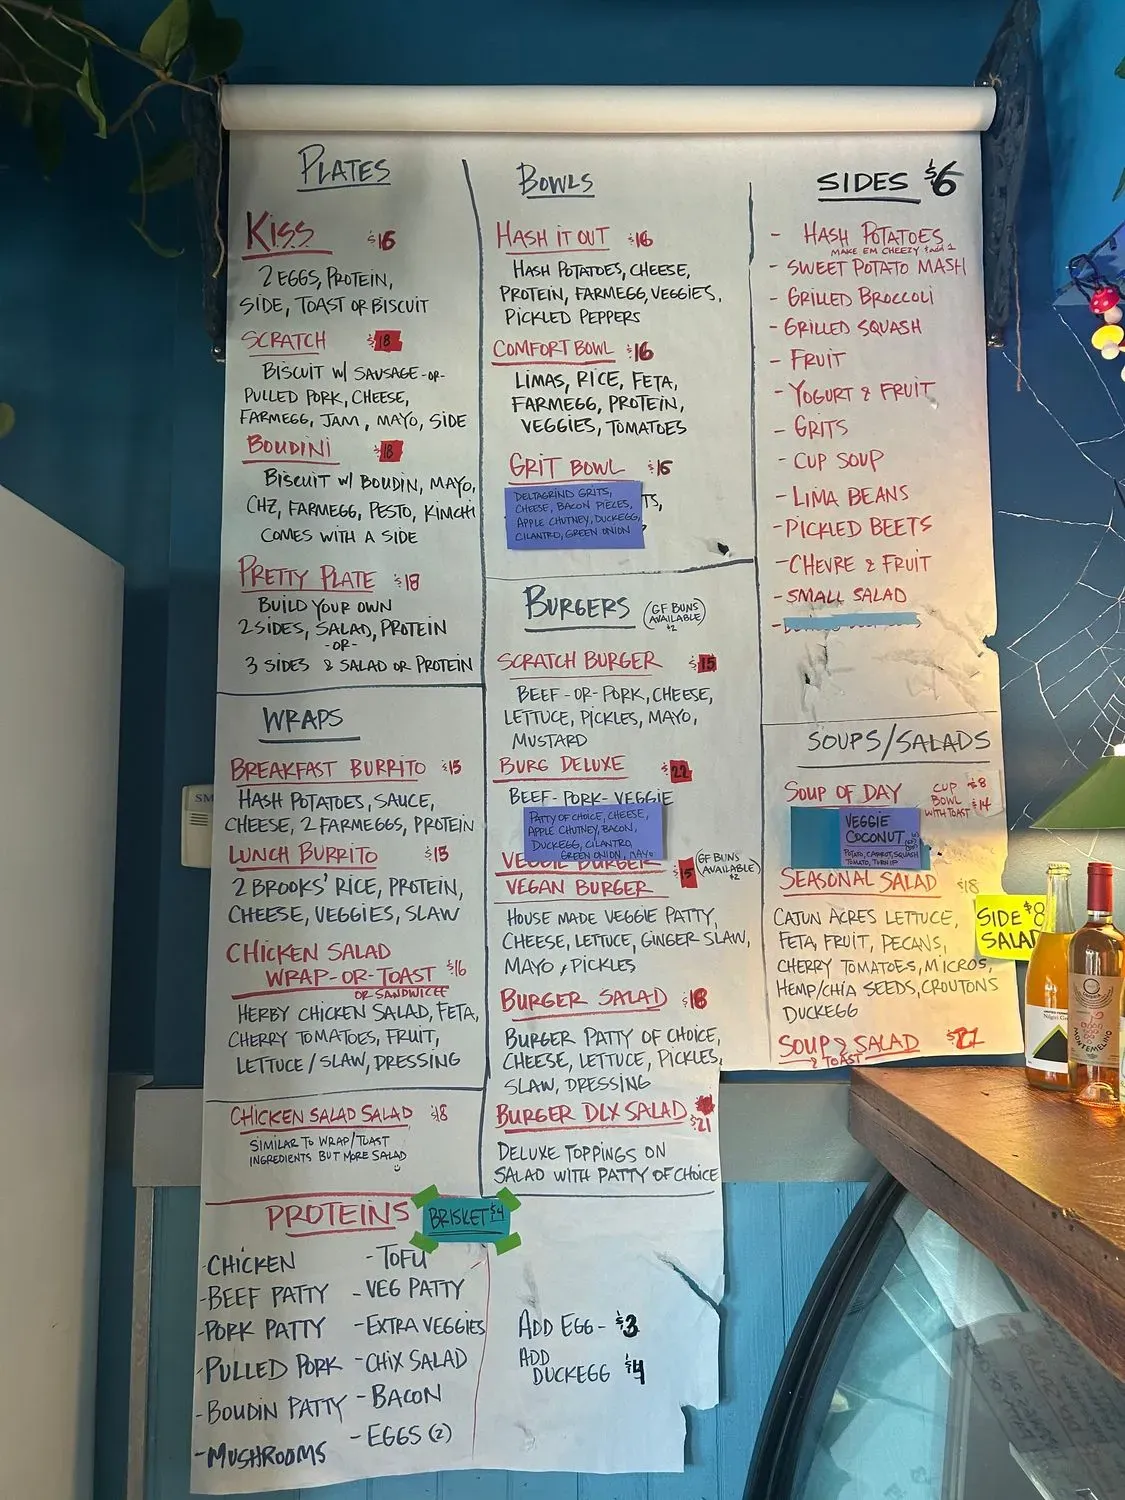 PLATES
KISS $16
2 EGGS, PROTEIN,
SIDE, TOAST OR BISCUIT
SCRATCH $18
BISCUIT W/ SAUSAGE -OR-
PULLED PORK, CHEESE,
FARMEGG, JAM, MAYO, SIDE
BOUDINI $18
BISCUIT W/ BOUDIN, MAYO,
CHZ, FARMEGG, PESTO, KIMCHI
COMES WITH A SIDE
PRETTY PLATE $18
BUILD YOUR OWN
2 SIDES, SALAD, PROTEIN
-OR-
3 SIDES & SALAD OR PROTEIN
WRAPS
BREAKFAST BURRITO $15
HASH POTATOES, SAUCE,
CHEESE, 2 FARMEGGS, PROTEIN
LUNCH BURRITO $15
2 BROOKS' RICE, PROTEIN,
CHEESE, VEGGIES, SLAW
CHICKEN SALAD
WRAP-OR-TOAST $16
OR SANDWICH
HERBY CHICKEN SALAD, FETA,
CHERRY TOMATOES, FRUIT,
LETTUCE/SLAW, DRESSING
CHICKEN SALAD SALAD $18
SIMILAR TO WRAP/TOAST
INGREDIENTS BUT MORE SALAD
BOWLS
HASH IT OUT $16
HASH POTATOES, CHEESE,
PROTEIN, FARMEGG, VEGGIES,
PICKLED PEPPERS
COMFORT BOWL $16
LIMAS, RICE, FETA,
FARMEGG, PROTEIN,
VEGGIES, TOMATOES
GRIT BOWL $16
DELTAGRIND GRITS,
CHEESE, BACON PIECES,
APPLE CHUTNEY, DUCKEGG,
CILANTRO, GREEN ONION
TS,
BURGERS (GF BUNS
AVAILABLE)
$2
SCRATCH BURGER $15
BEEF-OR-PORK, CHEESE,
LETTUCE, PICKLES, MAYO,
MUSTARD
BURG DELUXE $22
BEEF-PORK-VEGGIE
PATTY OF CHOICE, CHEESE,
APPLE CHUTNEY, BACON,
DUCKEGG, CILANTRO,
GREEN ONION, MAYO
VEGGIE BURGER
VEGAN BURGER $15 (GF BUNS
AVAILABLE)
$2
HOUSE MADE VEGGIE PATTY,
CHEESE, LETTUCE, GINGER SLAW,
MAYO, PICKLES
BURGER SALAD $18
BURGER PATTY OF CHOICE,
CHEESE, LETTUCE, PICKLES,
SLAW, DRESSING
BURGER DLX SALAD $21
DELUXE TOPPINGS ON
SALAD WITH PATTY OF CHOICE
SIDES $6
- HASH POTATOES
MAKE EM CHEEZY $ add 1
- SWEET POTATO MASH
- GRILLED BROCCOLI
- GRILLED SQUASH
- FRUIT
- YOGURT & FRUIT
- GRITS
- CUP SOUP
- LIMA BEANS
- PICKLED BEETS
- CHEVRE & FRUIT
- SMALL SALAD
SOUPS/SALADS
SOUP OF DAY CUP $8
BOWL $14
WITH TOAST
VEGGIE
COCONUT
POTATO, CARROT, SQUASH
TOMATO, TURNIP
SEASONAL SALAD $18
CATUN ACRES LETTUCE,
FETA, FRUIT, PECANS,
CHERRY TOMATOES, MICROS,
HEMP/CHIA SEEDS, CROUTONS
DUCKEGG
SIDE $8
SALAD
SOUP & SALAD $21
& TOAST
PROTEINS BRISKET $4
- CHICKEN
- BEEF PATTY
- PORK PATTY
- PULLED PORK
- BOUDIN PATTY
- MUSHROOMS
- TOFU
- VEG PATTY
- EXTRA VEGGIES
- CHIX SALAD
- BACON
- EGGS (2)
ADD EGG - $3
ADD
DUCKEGG $4
SM